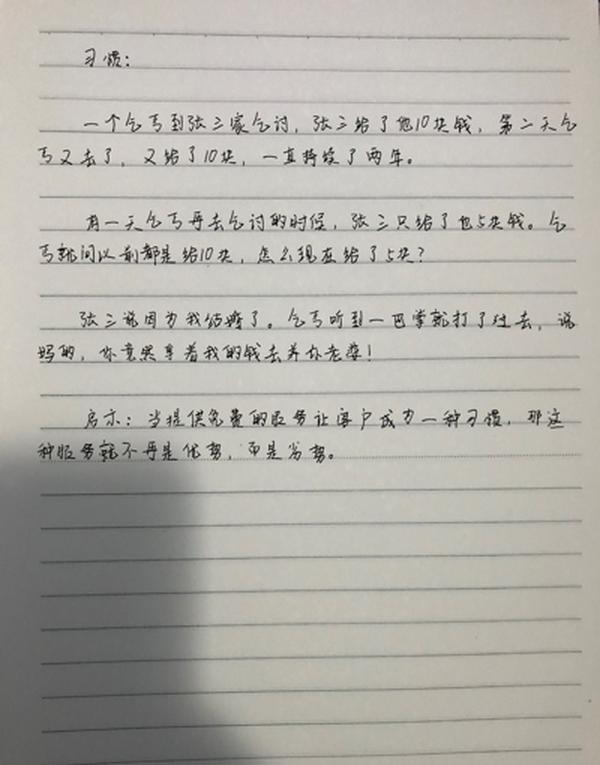 习惯：
一个乞丐到张三家乞讨，张三给了他10块钱，第二天乞
丐又去了，又给了10块，一直持续了两年。
有一天乞丐再去乞讨的时候，张三只给了他5块钱。乞
丐就问以前都是给10块，怎么现在给了5块？
张三说因为我结婚了。乞丐听到一巴掌就打了过去，说
妈的，你竟然拿着我的钱去养你老婆！
启示：当提供免费的服务让客户成为一种习惯，那这
种服务就不再是优势，而是劣势。